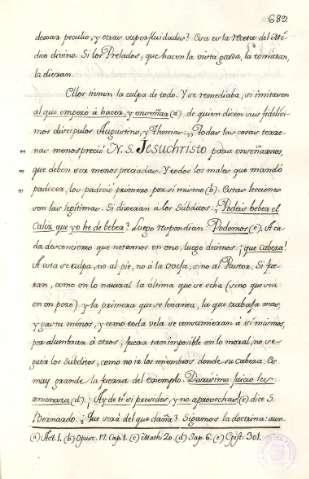 682
demas peculio, y otras superfluidades? Esa es la receta del Mé-
dico divino. Si los Prelados, que hacen la visita garla, la tomaran,
la dieran.
Ellos tienen la culpa de todo. Y se remediaba, si imitaran
al que empezó á hacer, y enseñar (a) de quien dicen sus fidelísi-
mos discipulos Augustino, y Thomas, ¡Todas las cosas terre-
nas menospreció N. S. Jesuchristo para enseñarnos,
que deben ser menos preciadas. Y todos los males que mandó
padecer, los padeció primero, por si mismo (b). Estas lecciones
son las legitimas. Si dixeran a los Subditos: ¿Podeis beber el
Caliz que yo he de beber? Luego respondian Podemos (c). A ca-
da desconcierto que notemos en uno, luego decimos: ¡que cabeza!
A esta se culpa, no al pie, no á la oveja, sino al Pastor. Si fue-
ran, como en lo natural la ultima que se echa (sino que sea
en un pozo) y la primera que se levanta, la que trabaja mas,
y por su minos, y como toda vela se consumieran á si mismos,
por alumbrar á otros, fuera tan imposible en lo moral, no se-
guir los subditos, como no ir los miembros donde su cabeza. Es
muy grande la fuerza del exemplo. Durissimo juicio les
amenaza (d). ¡Ay de ti si presides, y no aprovechas (e) dice S.
Bernardo. ¿Que será del que dañe? Sigamos la doctrina: aun-
(a) Act. 1. (b) Opusc. 17. Cap. 1. (c) Math. 20. (d) Sap. 6. (e) Epist. 301.